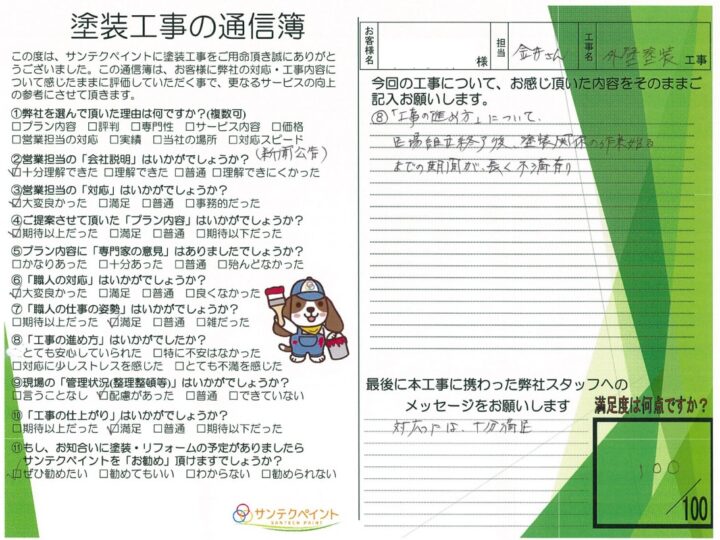 塗装工事の通信簿
この度は、サンテクペイントに塗装工事をご用命頂き誠にありがとうございました。この通信簿は、お客様に弊社の対応・工事内容について感じたままに評価していただく事で、更なるサービスの向上の参考にさせて頂きます。
①弊社を選んで頂いた理由は何ですか?(複数可)
□プラン内容 □評判 □専門性 □サービス内容 □価格
□営業担当の対応 □実績 □当社の場所 □対応スピード
(新聞公告)
②営業担当の「会社説明」はいかがでしょうか?
☑十分理解できた □理解できた □普通 □理解できにくかった
③営業担当の「対応」はいかがでしょうか?
☑大変良かった □満足 □普通 □事務的だった
④ご提案させて頂いた「プラン内容」はいかがでしょうか?
☑期待以上だった □満足 □普通 □期待以下だった
⑤プラン内容に「専門家の意見」はありましたでしょうか?
□かなりあった □十分あった □普通 □殆んどなかった
⑥「職人の対応」はいかがでしょうか?
☑大変良かった □満足 □普通 □良くなかった
⑦「職人の仕事の姿勢」はいかがでしょうか?
□期待以上だった ☑満足 □普通 □雑だった
⑧「工事の進め方」はいかがでしたか?
□とても安心していられた □特に不安はなかった
□対応に少しストレスを感じた □とても不満を感じた
⑨現場の「管理状況(整理整頓等)」はいかがでしょうか?
□言うことなし ☑配慮があった □普通 □できていない
⑩「工事の仕上がり」はいかがでしょうか?
□期待以上だった ☑満足 □普通 □期待以下だった
⑪もし、お知合いに塗装・リフォームの予定がありましたら
サンテクペイントを「お勧め」頂けますでしょうか?
☑ぜひ勧めたい □勧めてもいい □わからない □勧められない
サンテクペイント
SANTECH PAINT
お客様名 様 担当 金井さん 工事名 外壁塗装 工事
今回の工事について、お感じ頂いた内容をそのままご記入お願いします。
⑧「工事の進め方」について、
足場組立終了後、塗装関係の作業始る
までの期間が、長く不満有り
最後に本工事に携わった弊社スタッフへの
メッセージをお願いします
対応には、十分満足
満足度は何点ですか?
100
/100